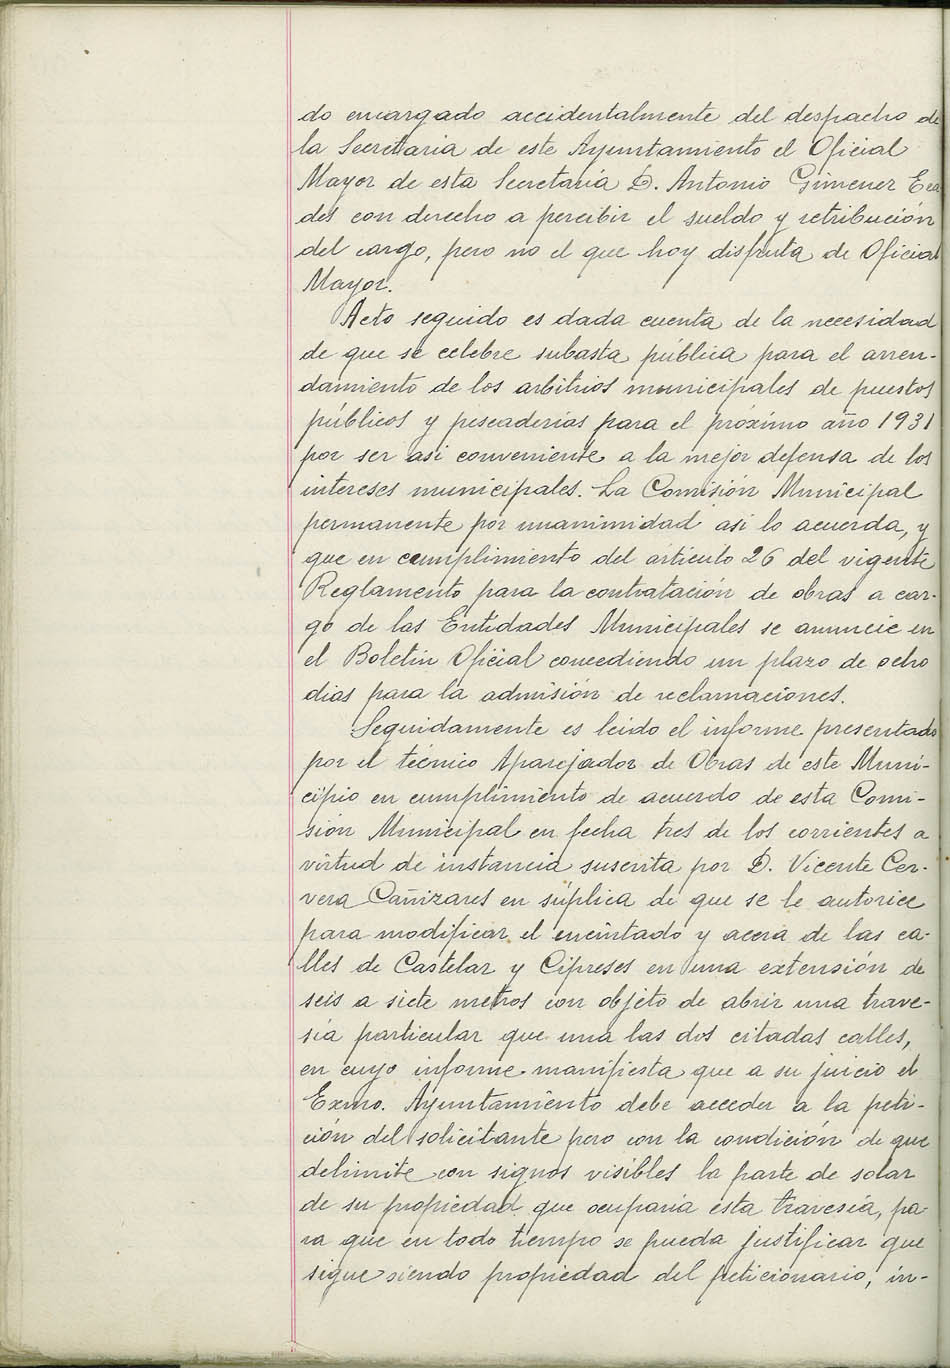 do encargado accidentalmente del despacho de
la Secretaria de este Ayuntamiento el Oficial
Mayor de esta Secretaría D. Antonio Gimener
des con derecho a percibir el sueldo y retribución
del cargo, pero no el que hoy disfruta de Oficial
Mayor.
Acto seguido es dada cuenta de la necesidad
de que se celebre subasta pública para el arren-
damiento de los arbitrios municipales de puestos
públicos y pescaderías para el próximo año 1931
por ser asi conveniente a la mejor defensa de los
intereses municipales. La Comisión Municipal
permanente por unanimidad asi lo acuerda, y
que en cumplimiento del artículo 26 del vigente
Reglamento para la contratación de obras a car-
go de las Entidades Municipales se anuncie en
el Boletin Oficial concediendo un plazo de ocho
dias para la admisión de reclamaciones.
Seguidamente es leido el informe presentado
por el técnico Aparejador de Obras de este Muni-
cipio en cumplimiento de acuerdo de esta Comi-
sión Municipal en fecha tres de los corrientes a
virtud de instancia suscrita por D. Vicente Cer-
vera Cañizares en súplica de que se le autorice
para modificar el encintado y acera de las ca-
lles de Castelar y Cipreses en una extensión de
seis a siete metros con objeto de abrir una trave-
sía particular que una las dos citadas calles,
en cuyo informe manifiesta que a su juicio el
Exmo. Ayuntamiento debe acceder a la peti-
ción del solicitante pero con la condición de que
delimite con signos visibles la parte de solar
de su propiedad que ocuparía esta travesía, pa-
ra que en todo tiempo se pueda justificar que
sigue siendo propiedad del peticionario, in-